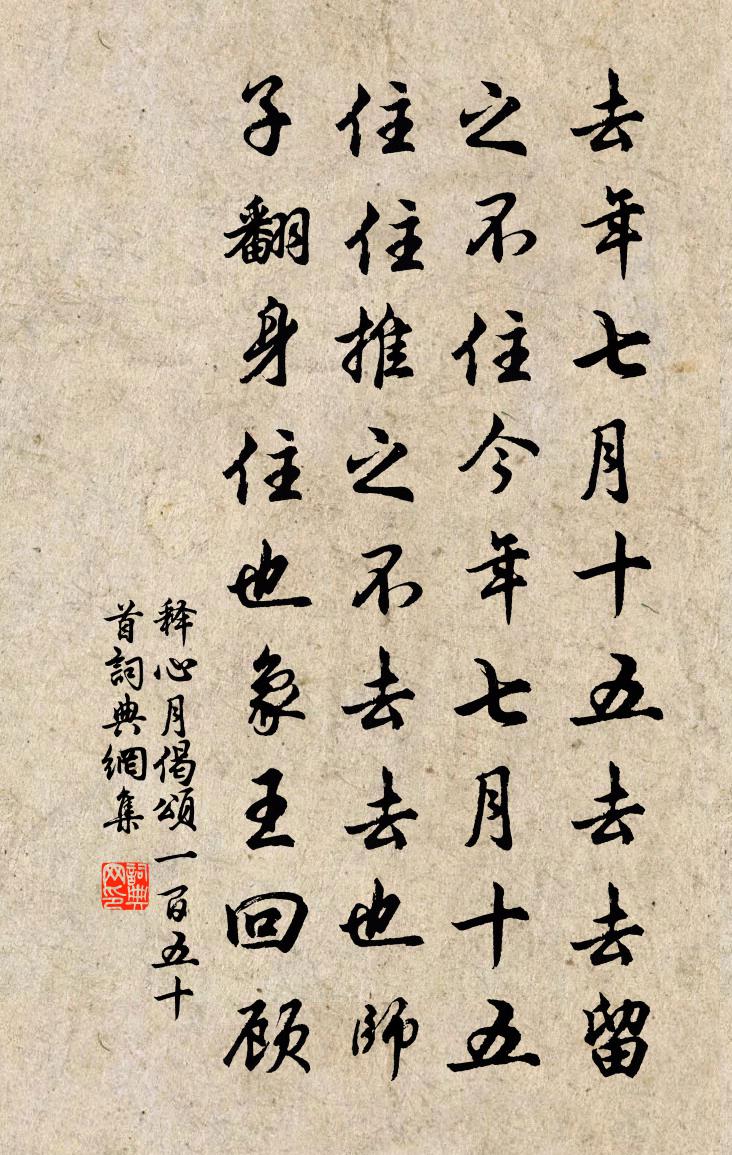 去年七月十五去去留
之不住今年七月十五
住住推之不去去也師
子翻身住也象王回顾
释心月偈頌一百五十
首詞典網集
詞典网印